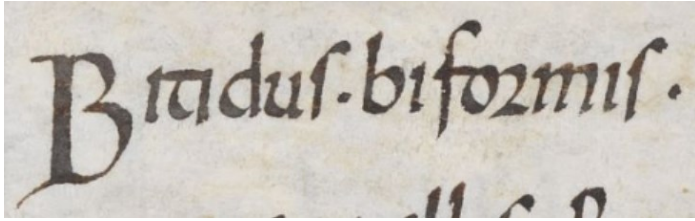 Bitidus · biformis ·